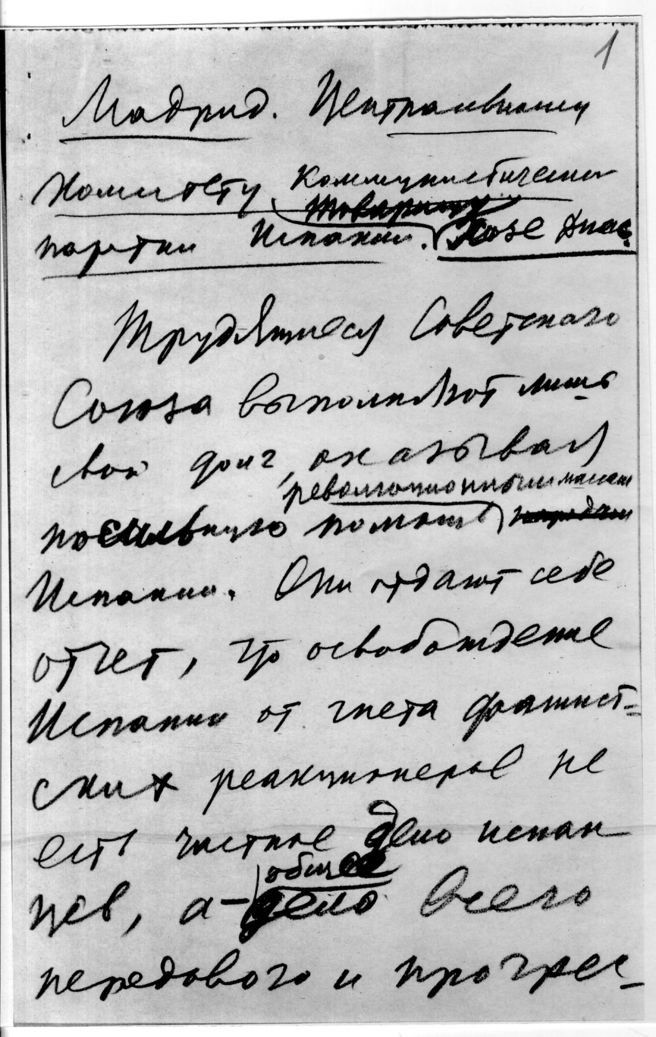 1
Мадрид. Центральному
Комитету Коммунистической
товарищу
партии Испании. Хозе Диас.
Трудящиеся Советского
Союза выполняют лишь
свой долг, оказывая
революционным массам
посильную помощь
Испании. Они отдают себе
отчет, что освобождение
Испании от гнета фашист-
ских реакционеров не
есть частное дело испан-
общее
цев, а – дело всего
передового и прогрес-